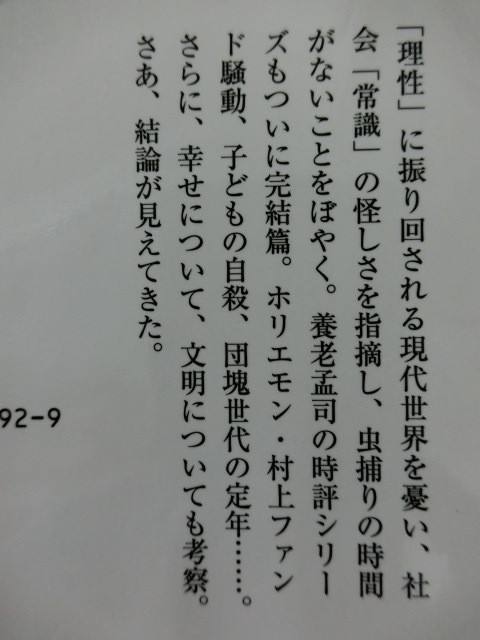 「理性」に振り回される現代世界を憂い、社
会「常識」の怪しさを指摘し、虫捕りの時間
がないことをぼやく。養老孟司の時評シリー
ズもついに完結篇。ホリエモン・村上ファン
ド騒動、子どもの自殺、団塊世代の定年……。
さらに、幸せについて、文明についても考察。
さあ、結論が見えてきた。
92-9